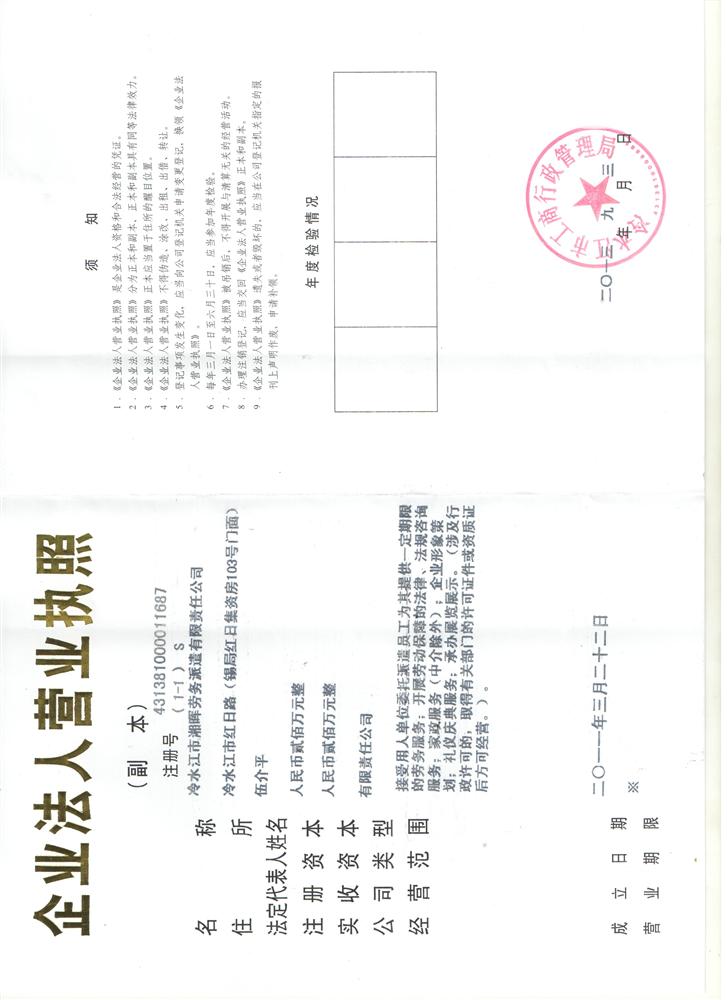 企业法人营业执照
（副 本）
注册号 431381000011687
（1-1） S
名 称 冷水江市湘晖劳务派遣有限责任公司
住 所 冷水江市红日路（锡局红日集资房103号门面）
法定代表人姓名 伍介平
注册资本 人民币贰佰万元整
实收资本 人民币贰佰万元整
公司类型 有限责任公司
经营范围 接受用人单位委托派遣员工为其提供一定期限
的劳务服务；开展劳动保障的法律、法规咨询
服务；家政服务（中介除外）；企业形象策
划；礼仪庆典服务；承办展览展示。（涉及行
政许可的，取得有关部门的许可证件或资质证
后方可经营。）。
成立日期 二〇一一年三月二十二日
营业期限 ※
须 知
1．《企业法人营业执照》是企业法人资格和合法经营的凭证。
2．《企业法人营业执照》分为正本和副本，正本和副本具有同等法律效力。
3．《企业法人营业执照》正本应当置于住所的醒目位置。
4．《企业法人营业执照》不得伪造、涂改、出租、出借、转让。
5．登记事项发生变化，应当向公司登记机关申请变更登记，换领《企业法
人营业执照》。
6．每年三月一日至六月三十日，应当参加年度检验。
7．《企业法人营业执照》被吊销后，不得开展与清算无关的经营活动。
8．办理注销登记，应当交回《企业法人营业执照》正本和副本。
9．《企业法人营业执照》遗失或者毁坏的，应当在公司登记机关指定的报
刊上声明作废，申请补领。
年度检验情况
冷水江市工商行政管理局
二〇一三年九月三日